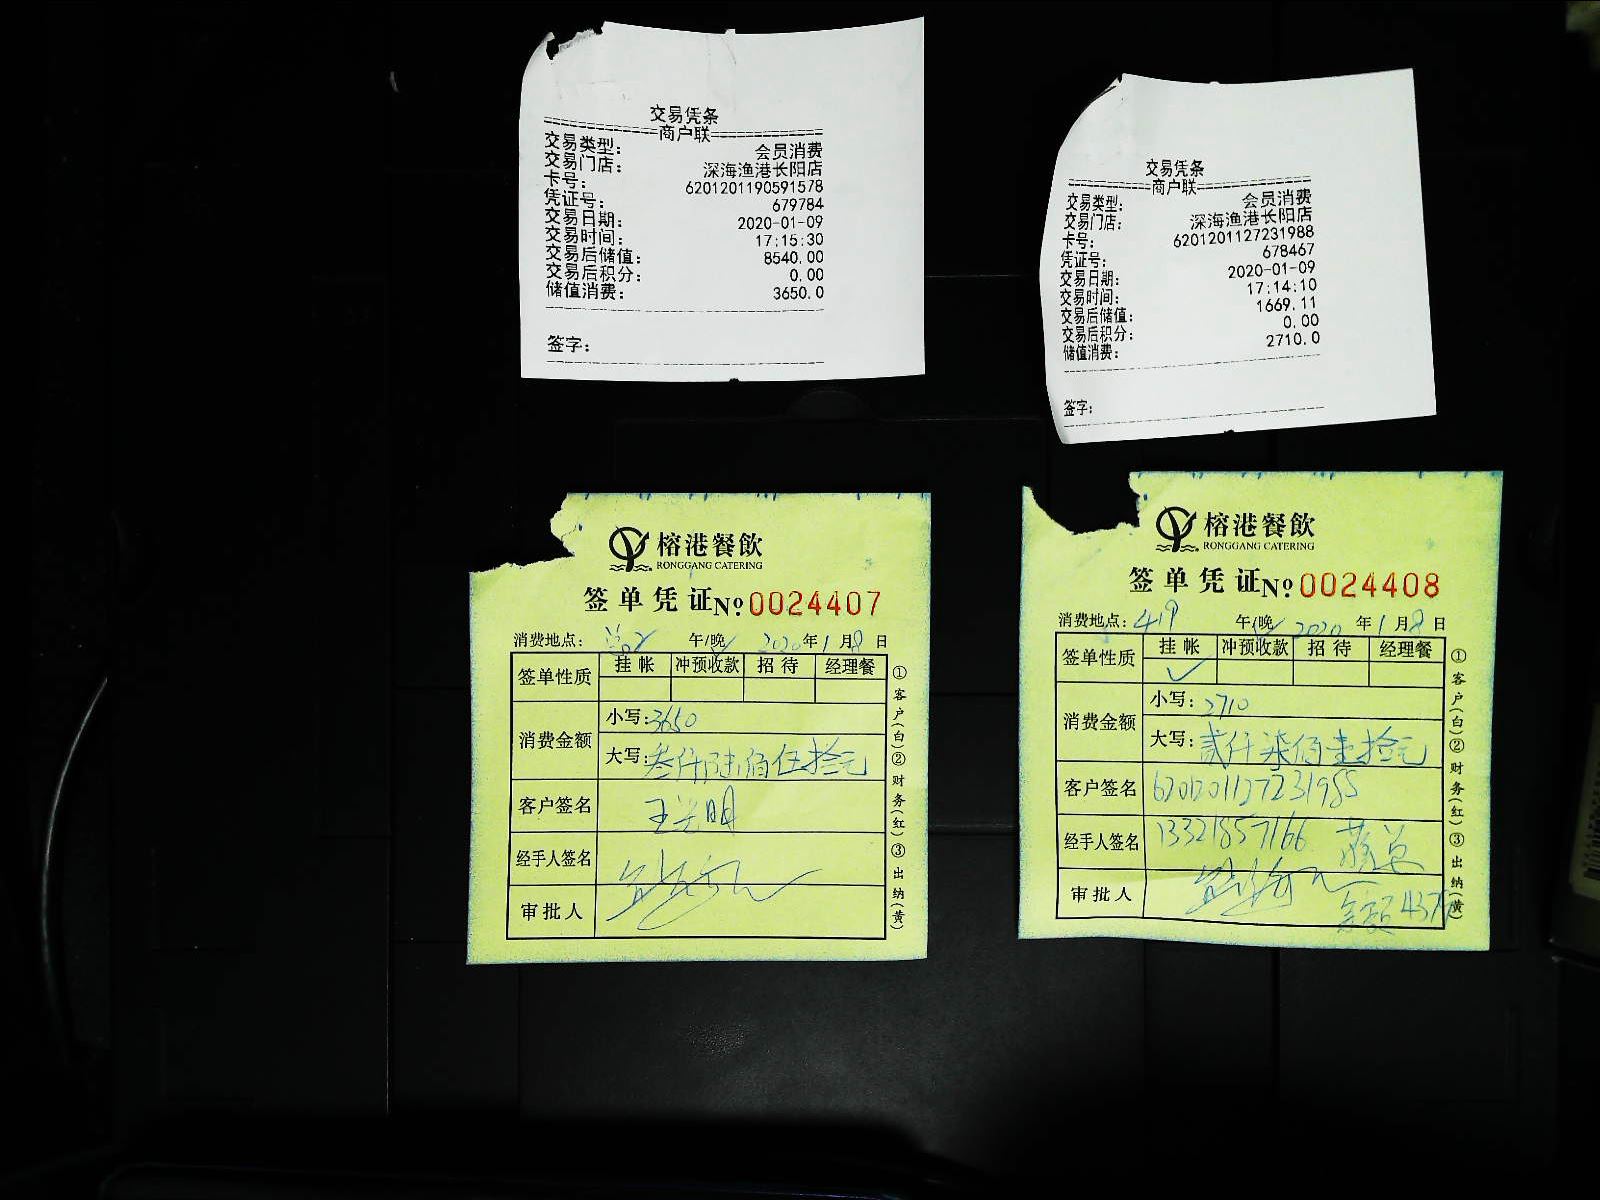 交易凭条
商户联
交易类型： 会员消费
交易门店： 深海渔港长阳店
卡号： 6201201190591578
凭证号： 679784
交易日期： 2020-01-09
交易时间： 17:15:30
交易后储值： 8540.00
交易后积分： 0.00
储值消费： 3650.0
签字：
交易凭条
商户联
交易类型： 会员消费
交易门店： 深海渔港长阳店
卡号： 6201201127231988
凭证号： 678467
交易日期： 2020-01-09
交易时间： 17:14:10
交易后储值： 1669.11
交易后积分： 0.00
储值消费： 2710.0
签字：
榕港餐飲
RONGGANG CATERING
签单凭证 №0024407
消费地点： 午/晚 2020年1月8日
签单性质 挂帐 冲预收款 招待 经理餐
消费金额 小写：3650
大写：叁仟陆佰伍拾元
客户签名 王光明
经手人签名
审批人
①客户(白)②财务(红)③出纳(黄)
榕港餐飲
RONGGANG CATERING
签单凭证 №0024408
消费地点：419 午/晚 2020年1月8日
签单性质 挂帐 冲预收款 招待 经理餐
消费金额 小写：2710
大写：贰仟柒佰壹拾元
客户签名 6201201127231988
经手人签名 13321857166
审批人 余额437
①客户(白)②财务(红)③出纳(黄)